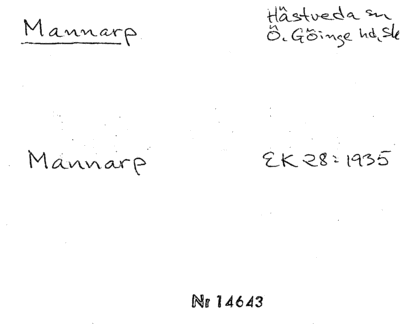 Mannarp
Hästveda sn
Ö. Göinge hd, Sk
Mannarp
EK 28:1935
Nr 14643